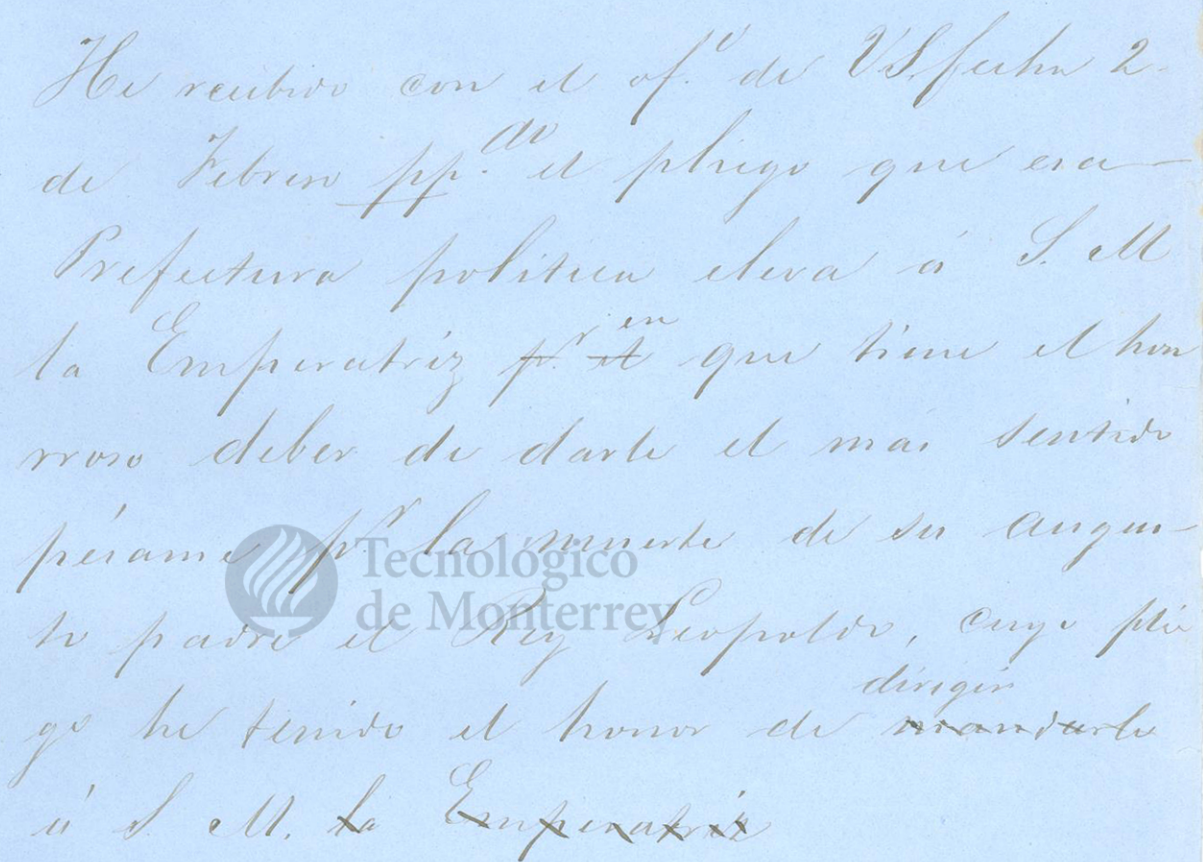 He recibido con el of.º de VS. fecha 2.
de Febrero pp.do el pliego que esa
Prefectura política eleva á S. M
la Emperatriz p.r el en que tiene el hon
rroso deber de darle el más sentido
pésame p.r la muerte de su augus-
to padre el Rey Leopoldo, cuyo plie
go he tenido el honor de mandarle dirigir
á S. M. la Emperatriz
Tecnológico
de Monterrey